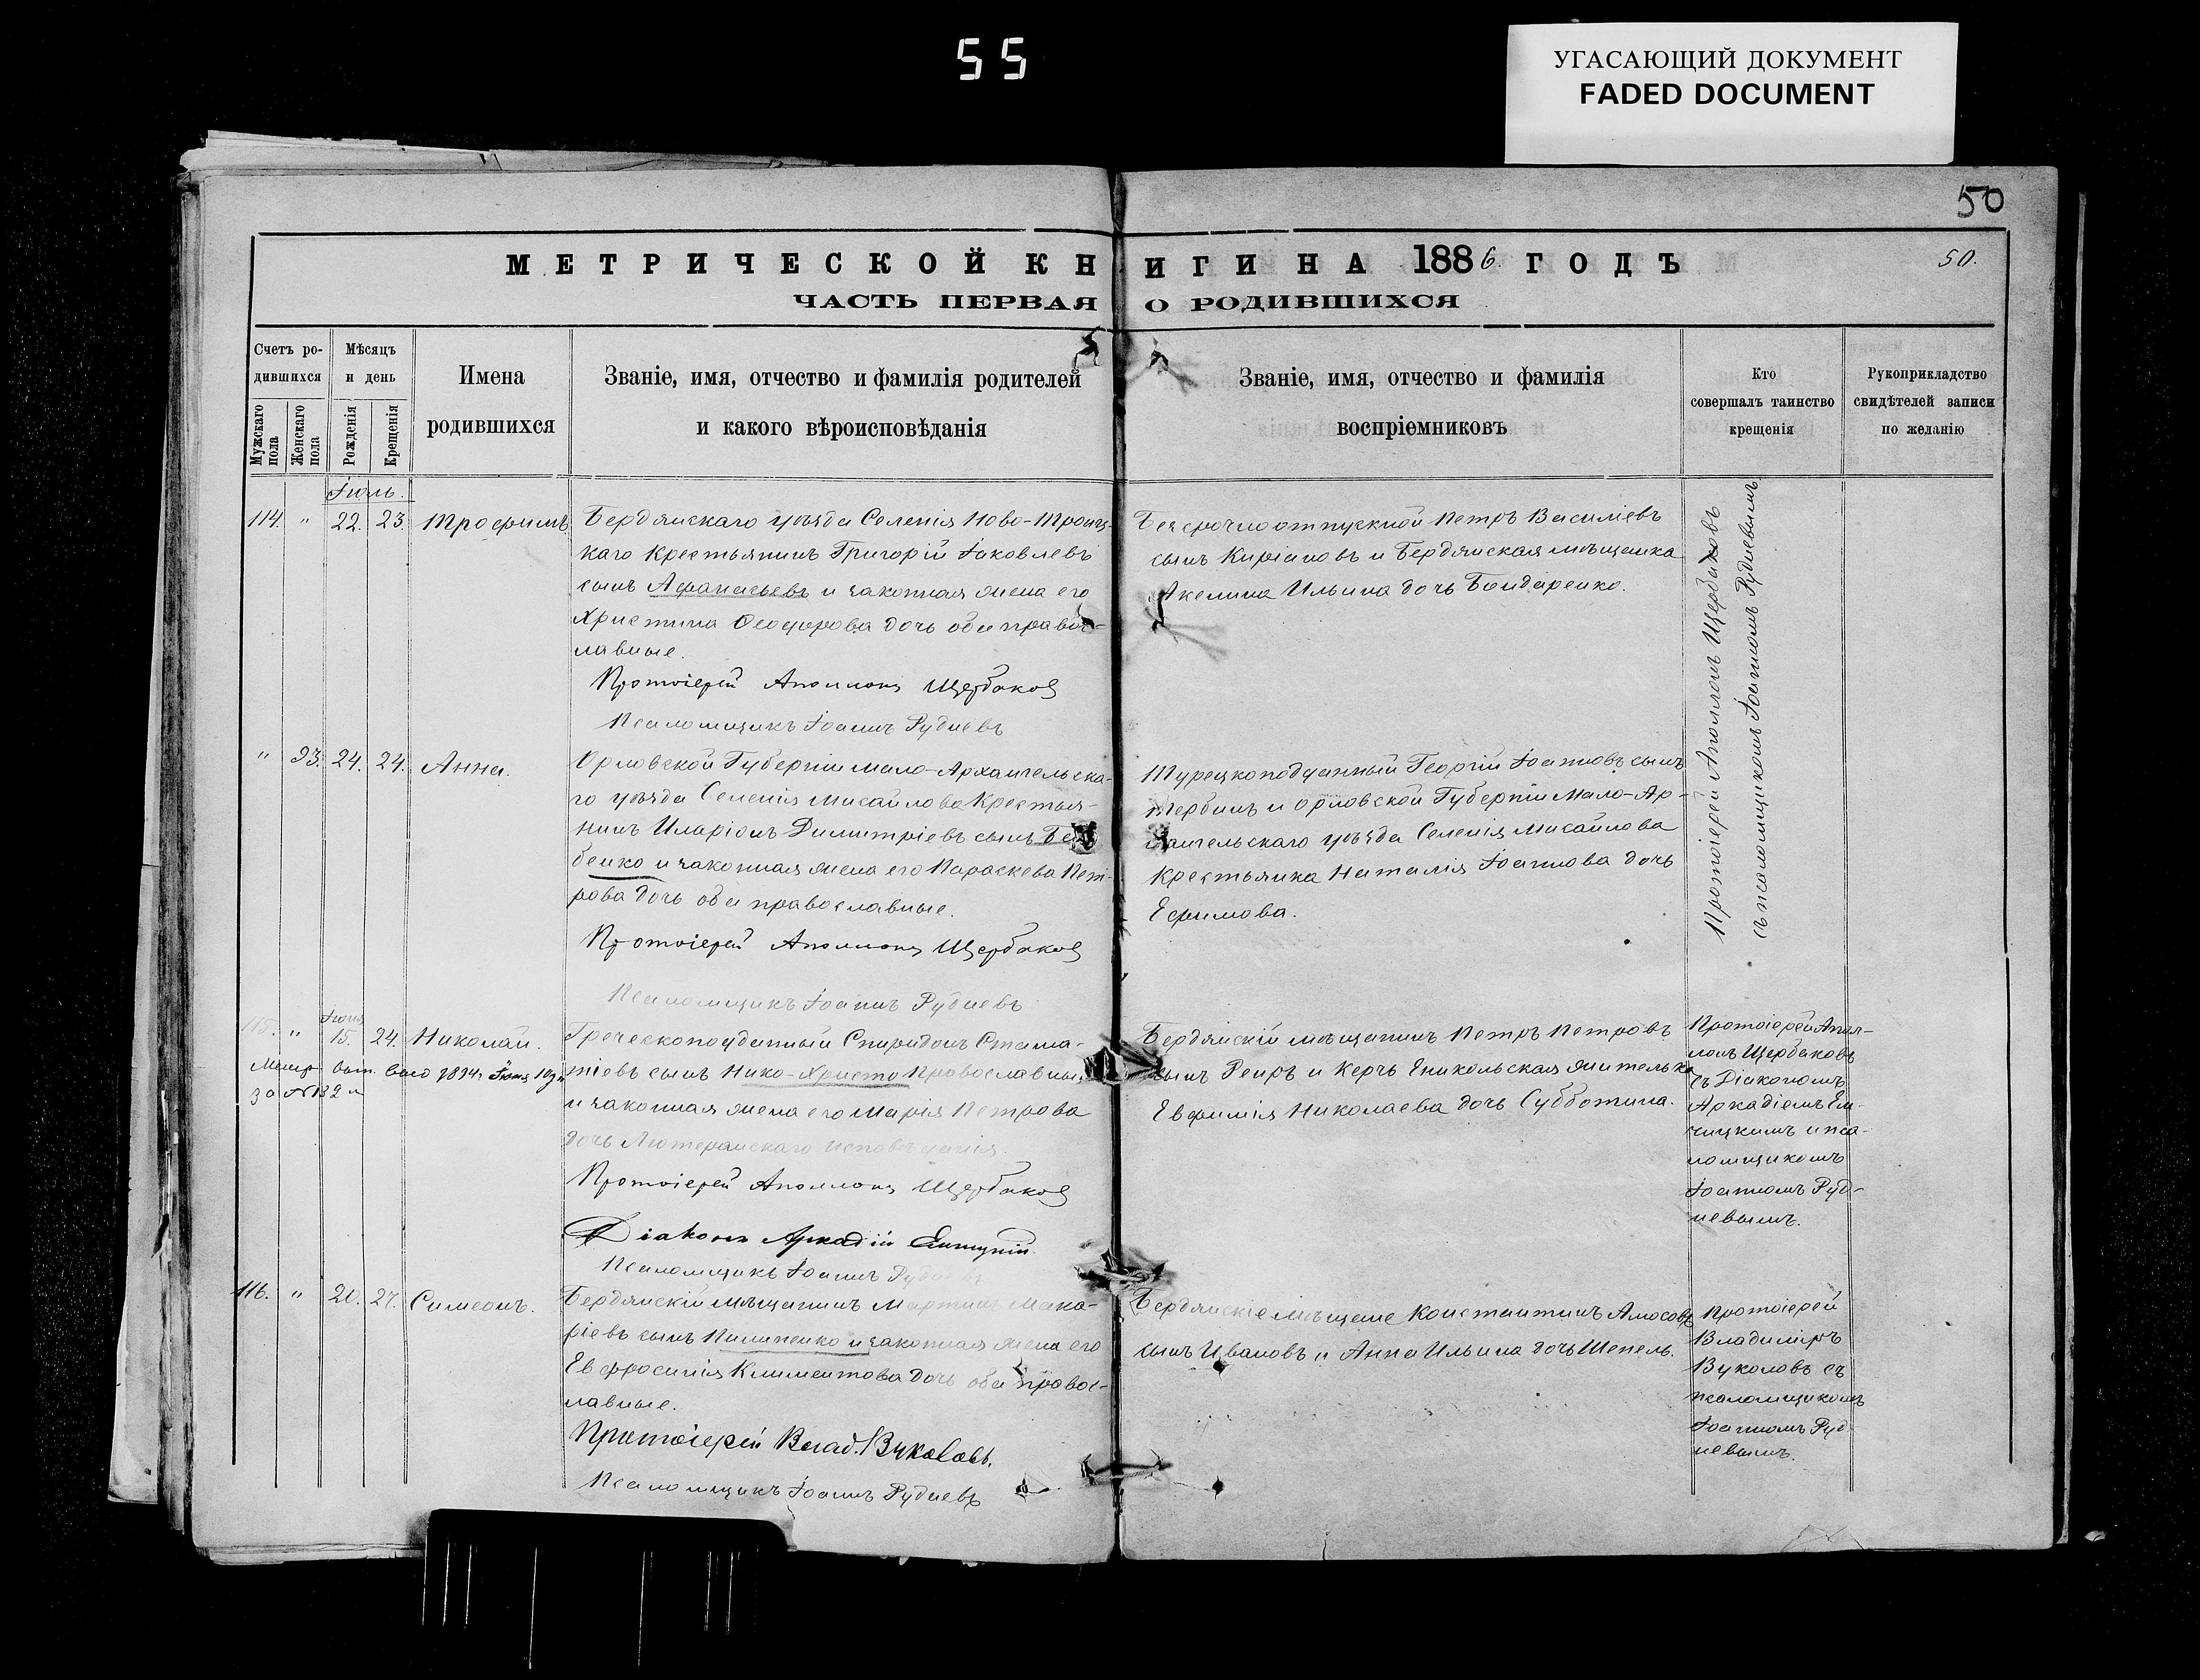 55
УГАСАЮЩИЙ ДОКУМЕНТ
FADED DOCUMENT
50
МЕТРИЧЕСКОЙ КНИГИ НА 1886 ГОДЪ
50.
ЧАСТЬ ПЕРВАЯ О РОДИВШИХСЯ
Счетъ ро-
дившихся
Мужскаго пола
Женскаго пола
Мѣсяцъ
и день
Рожденія
Крещенія
Имена
родившихся
Званіе, имя, отчество и фамилія родителей
и какого вѣроисповѣданія
Званіе, имя, отчество и фамилія
воспріемниковъ
Кто
совершалъ таинство
крещенія
Рукоприкладство
свидѣтелей записи
по желанію
Іюль.
114. " 22. 23. Трофимъ.
Бердянскаго уѣзда Селенія Ново-Троиц-
каго Крестьянинъ Григорій Іаковлевъ
сынъ Афанасьевъ и законная жена его
Христина Ѳеодорова дочь оба правос-
лавные.
Протоіерей Аполлонъ Щербаковъ
Псаломщикъ Іоаннъ Рудневъ
Безсрочноотпускной Петръ Василіевъ
сынъ Киріановъ и Бердянская мѣщанка
Акелина Ильина дочь Бондаренко.
Протоіерей Аполлонъ Щербаковъ
съ псаломщикомъ Іоанномъ Рудневымъ
" 93. 24. 24. Анна.
Орловской Губерніи Мало-Архангельска-
го уѣзда Селенія Мисайлова Крестья-
нинъ Иларіонъ Димитріевъ сынъ
бенко и законная жена его Параскева Пет-
рова дочь оба православные.
Протоіерей Аполлонъ Щербаковъ
Псаломщикъ Іоаннъ Рудневъ
Турецкоподданный Георгій Іоанновъ сынъ
Тербинъ и Орловской Губерніи Мало-Ар-
хангельскаго уѣзда Селенія Мисайлова
крестьянка Наталія Іоаннова дочь
Ефимова.
Іюня
115. " 15. 24. Николай.
Метр. вып. выд 1894 г. Іюня 10 дн
за №132 м
Греческоподданный Спиридонъ Стама-
тіевъ сынъ Нико-Христо Православный
и законная жена его Марія Петрова
дочь Лютеранскаго исповѣданія.
Протоіерей Аполлонъ Щербаковъ
Діаконъ Аркадій
Псаломщикъ Іоаннъ Рудневъ
Бердянскій мѣщанинъ Петръ Петровъ
сынъ Реиръ и Керчь Еникольская жителька
Евфимія Николаева дочь Субботина.
Протоіерей Апол-
лонъ Щербаковъ
съ Діакономъ
Аркадіемъ Ен-
чицкимъ и пса-
ломщикомъ
Іоанномъ Руд-
невымъ.
116. " 20. 27. Симеонъ.
Бердянскій мѣщанинъ Мартинъ Мака-
ріевъ сынъ Пилипенко и законная жена его
Евфросинія Климентова дочь оба правос-
лавные.
Протоіерей Влад. Вуколовъ.
Псаломщикъ Іоаннъ Рудневъ
Бердянскіе мѣщане Константинъ Амосовъ
сынъ Ивановъ и Анна Ильина дочь Шепель.
Протоіерей
Владиміръ
Вуколовъ съ
псаломщикомъ
Іоанномъ Руд-
невымъ.